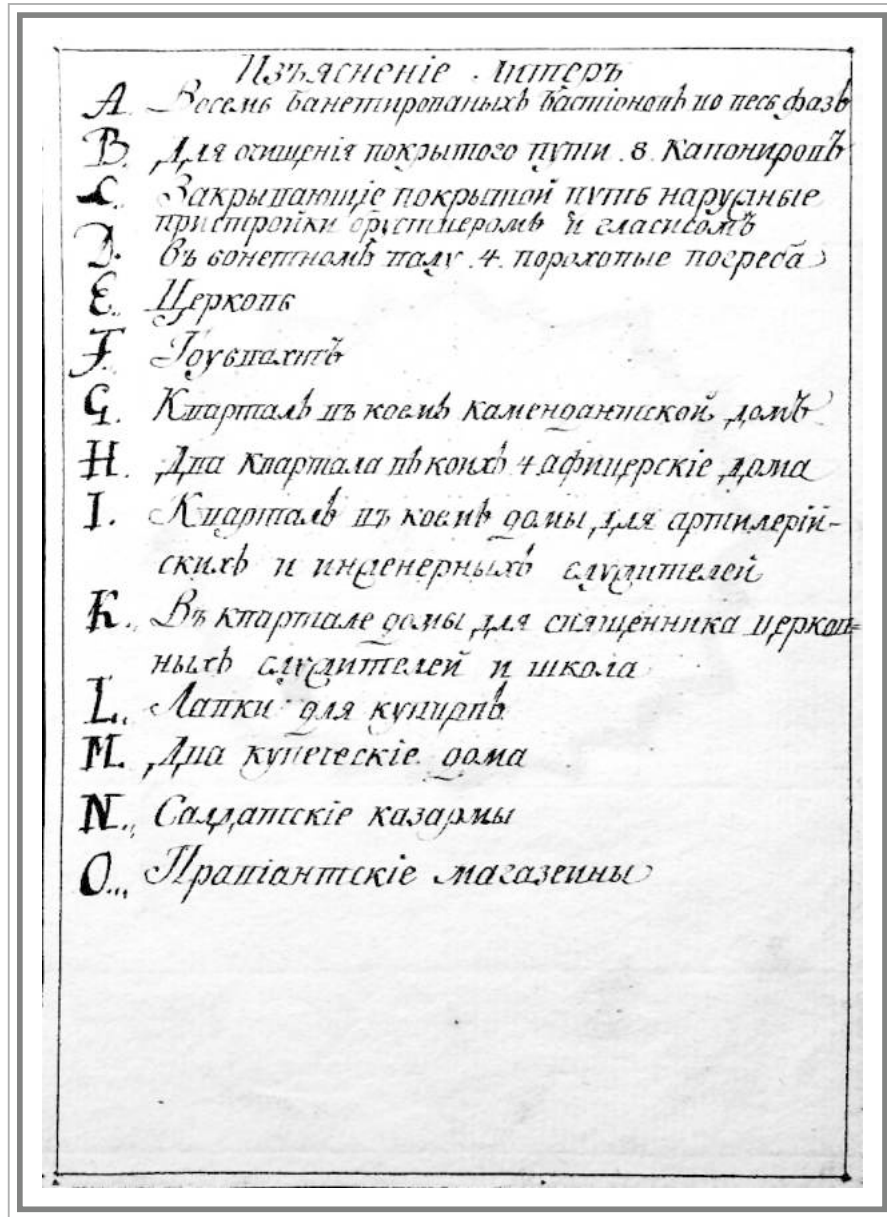 Изъясненіе литеръ
A. Восемь банетированыхъ бастіоновъ во весь фазъ
B. Для очищенія покрытого пути .8. Капонировъ
C. Закрывающіе покрытой путь наружные
пристройки бруствером и гласисомъ
D. Въ бонетномъ валу .4. пороховые погреба
E.. Церковь
F. Гоубвахтъ
G. Кварталъ въ коемъ камендантской домъ
H. Два квартала въ коихъ 4 афицерскіе дома
I. Кварталъ въ коемъ домы для артилерій-
скихъ и инженерныхъ служителей
K.. Въ квартале домы для священника церков=
ныхъ служителей и школа
L.. Лавки для купцовъ
M. Два купеческіе дома
N.. Салдатскіе казармы
O... Правіантскіе магазеины